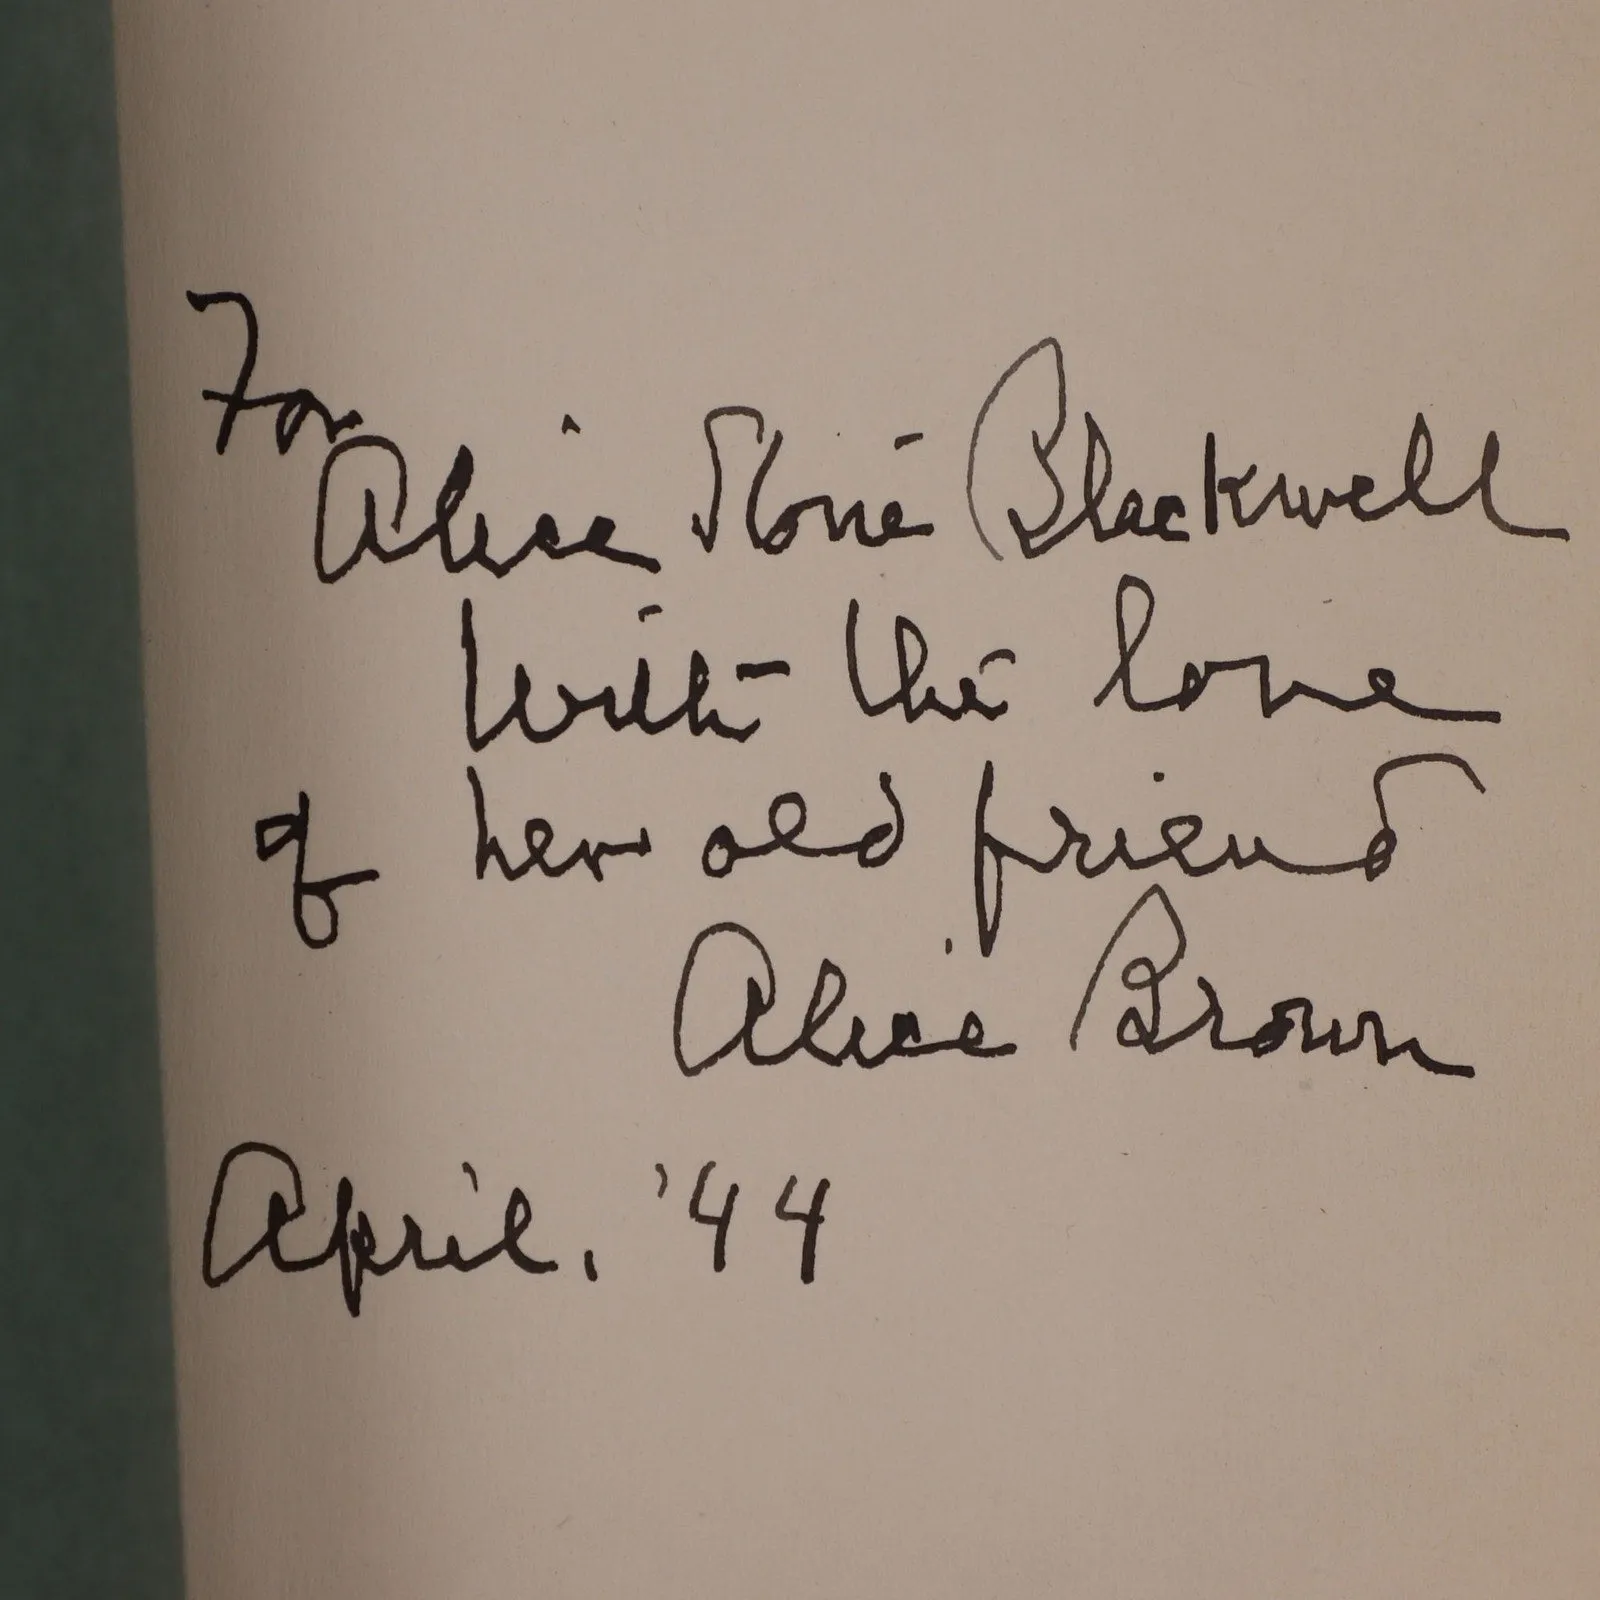 For
Alice Stone Blackwell
With the love
of her old friend
Alice Brown
April. '44